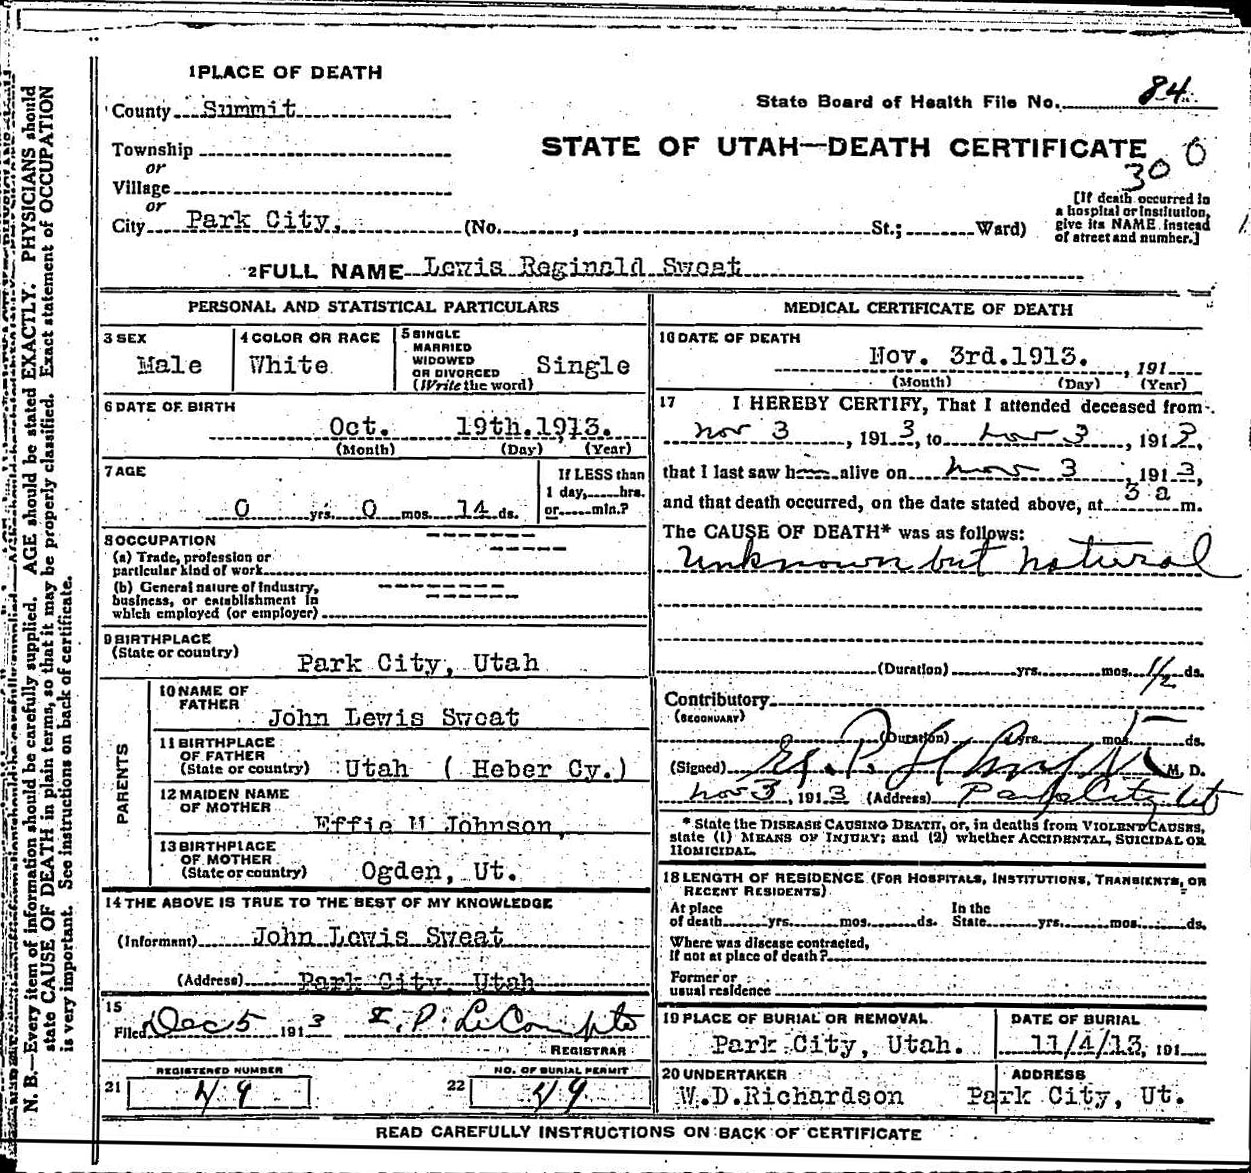 1 PLACE OF DEATH
State Board of Health File No. 84
County Summit
STATE OF UTAH—DEATH CERTIFICATE
300
Township
or
Village
or
City Park City, (No. , St.; Ward)
[If death occurred in
a hospital or institution,
give its NAME instead
of street and number.]
2 FULL NAME Lewis Reginald Sweat
PERSONAL AND STATISTICAL PARTICULARS
3 SEX
Male
4 COLOR OR RACE
White
5 SINGLE
MARRIED
WIDOWED
OR DIVORCED
(Write the word)
Single
6 DATE OF BIRTH
Oct. 19th.1913.
(Month) (Day) (Year)
7 AGE
0 yrs. 0 mos. 14 ds.
If LESS than
1 day, hrs.
or min.?
8 OCCUPATION
(a) Trade, profession or
particular kind of work
(b) General nature of industry,
business, or establishment in
which employed (or employer)
9 BIRTHPLACE
(State or country)
Park City, Utah
PARENTS
10 NAME OF
FATHER
John Lewis Sweat
11 BIRTHPLACE
OF FATHER
(State or country) Utah ( Heber Cy.)
12 MAIDEN NAME
OF MOTHER
Effie M Johnson,
13 BIRTHPLACE
OF MOTHER
(State or country) Ogden, Ut.
14 THE ABOVE IS TRUE TO THE BEST OF MY KNOWLEDGE
(Informant) John Lewis Sweat
(Address) Park City, Utah
15
Filed Dec 5 1913 E. P. LeCompte
REGISTRAR
REGISTERED NUMBER
21 49
NO. OF BURIAL PERMIT
22 49
MEDICAL CERTIFICATE OF DEATH
16 DATE OF DEATH
Nov. 3rd.1913. , 191
(Month) (Day) (Year)
17 I HEREBY CERTIFY, That I attended deceased from
Nov 3, 1913, to Nov 3, 1913,
that I last saw h alive on Nov 3, 1913,
and that death occurred, on the date stated above, at 3 a m.
The CAUSE OF DEATH* was as follows:
Unknown but natural
(Duration) yrs. mos. 1/2 ds.
Contributory
(SECONDARY)
(Duration) yrs. mos. ds.
(Signed) M. D.
Nov 3, 1913 (Address) Park City Ut
* State the DISEASE CAUSING DEATH, or, in deaths from VIOLENT CAUSES,
state (1) MEANS OF INJURY; and (2) whether ACCIDENTAL, SUICIDAL OR
HOMICIDAL.
18 LENGTH OF RESIDENCE (FOR HOSPITALS, INSTITUTIONS, TRANSIENTS, OR
RECENT RESIDENTS)
At place In the
of death yrs. mos. ds. State yrs. mos. ds.
Where was disease contracted,
if not at place of death?
Former or
usual residence
19 PLACE OF BURIAL OR REMOVAL
Park City, Utah.
DATE OF BURIAL
11/4/13, 191
20 UNDERTAKER
W.D.Richardson
ADDRESS
Park City, Ut.
READ CAREFULLY INSTRUCTIONS ON BACK OF CERTIFICATE
N. B.—Every item of information should be carefully supplied. AGE should be stated EXACTLY. PHYSICIANS should
state CAUSE OF DEATH in plain terms, so that it may be properly classified. Exact statement of OCCUPATION
is very important. See instructions on back of certificate.